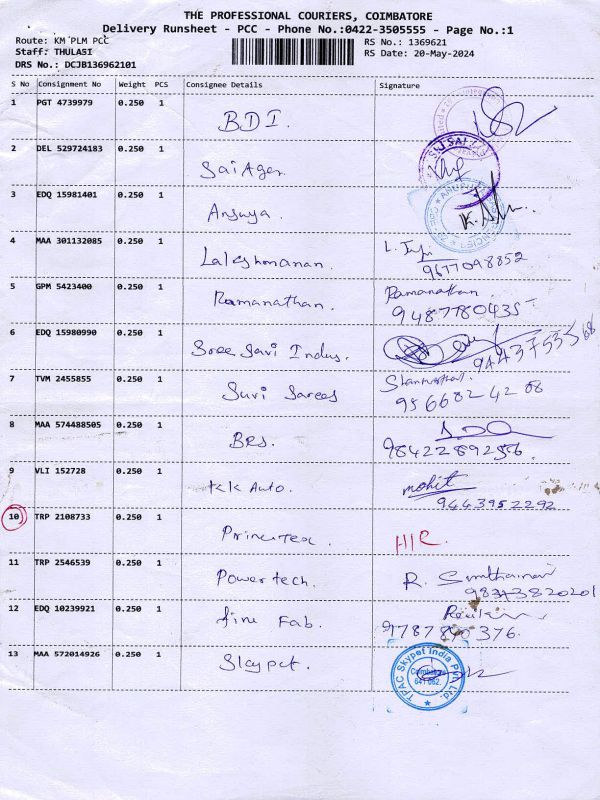 THE PROFESSIONAL COURIERS, COIMBATORE
Delivery Runsheet - PCC - Phone No.:0422-3505555 - Page No.:1
Route: KM PLM PCC
Staff: THULASI
DRS No.: DCJB136962101
RS No.: 1369621
RS Date: 20-May-2024
S No Consignment No Weight PCS Consignee Details Signature
1 PGT 4739979 0.250 1 BDI.
2 DEL 529724183 0.250 1 Sai Agen
3 EDQ 15981401 0.250 1 Ansuya. K.
4 MAA 301132085 0.250 1 Lakshmanan. L.
9677098852
5 GPM 5423400 0.250 1 Ramanathan. Ramanathan.
9487780435
6 EDQ 15980990 0.250 1 Sree Savi Indus. 9443753568
7 TVM 2455855 0.250 1 Suvi Sarees
9566824208
8 MAA 574488505 0.250 1 BRS.
9842289256
9 VLI 152728 0.250 1 KK Auto. mohit
9443952292
10 TRP 2108733 0.250 1 Princetex.
11 TRP 2546539 0.250 1 Powertech. R.
12 EDQ 10239921 0.250 1 fine Fab.
9787890376.
13 MAA 572014926 0.250 1 Skypet.
TPAC Skypet India Pvt. Ltd.
Coimbatore
641 062.